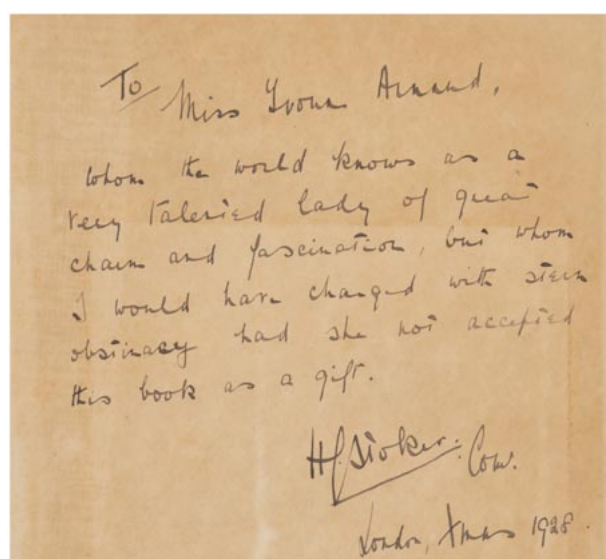 To Miss Yvonne Arnaud,
whom the world knows as a
very talented lady of great
charm and fascination, but whom
I would have charged with stern
obstinacy had she not accepted
this book as a gift.
H.G. Stoker. Com.
London, Xmas 1928.